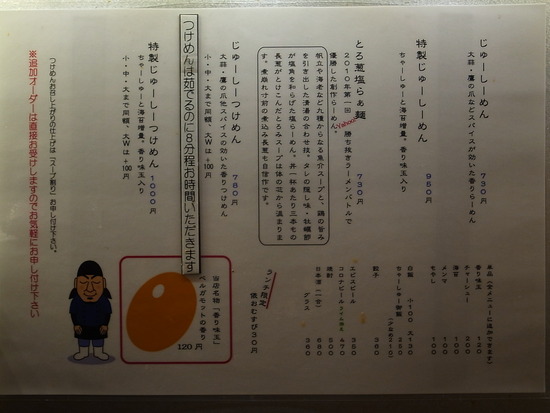 じゅーしーめん 730円
大蒜・鷹の爪などスパイスが効いた香りらーめん
特製じゅーしーらーめん 950円
ちゃーしゅーと海苔増量。香り味玉入り
とろ葱塩らぁ麺 730円
2010年第一回 Yahoo! 勝ち抜きラーメンバトルで
優勝した創作らーめん。
帆立や海老など九種からなる魚介スープと、鶏の旨み
を引き出した清湯の合わせ技。タレの隠し味・牡蠣節
が塩角を和らげた塩らーめん。丼一杯あたり三本もの
長葱がとけこんだとろみスープは体の芯から温まりま
す。煮崩れ寸前の煮込み長葱も自信作です。
じゅーしーつけめん 780円
大蒜・鷹の爪他スパイスの効いた香りつけめん
小・中・大まで同額、大Wは+100円
つけめんは茹でるのに8分程お時間いただきます
特製じゅーしーつけめん 1000円
ちゃーしゅーと海苔増量。香り味玉入り
小・中・大まで同額、大Wは+100円
つけめんお召し上がりの仕上げは「スープ割り」お申し付け下さい。
※追加オーダーは直接お受けしますのでお気軽にお申し付け下さい
単品(全メニューに追加できます)
香り味玉 120
チャーシュー 250
海苔 100
メンマ 100
もやし 100
白飯 小100 大130
ちゃーしゅー御飯 250
餃子 360
ヱビスビール 500
コロナビール 470
焼酎 350
日本酒(一合) 680
グラス 360
ランチ限定
俵おむすび30円
当店名物「香り味玉」
ベルガモットの香り
120円